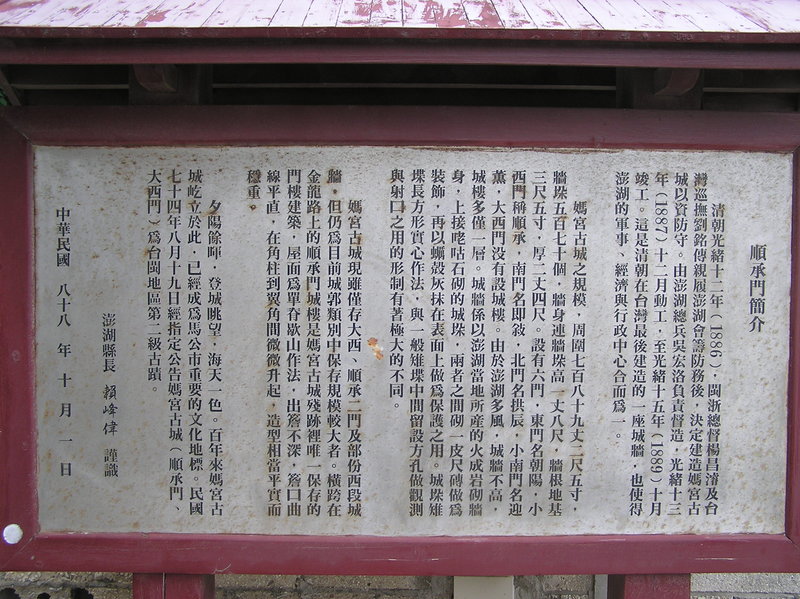 順承門簡介
清朝光緒十二年（1886），閩浙總督楊昌濬及台
灣巡撫劉銘傳親履澎湖會籌防務後，決定建造媽宮古
城以資防守。由澎湖總兵吳宏洛負責督造，光緒十三
年（1887）十二月動工，至光緒十五年（1889）十月
竣工。這是清朝在台灣最後建造的一座城牆，也使得
澎湖的軍事、經濟與行政中心合而為一。
媽宮古城之規模，周圍七百八十九丈二尺五寸，
牆垛五百七十個，牆身連牆垛高一丈八尺，牆根地基
三尺五寸，厚二丈四尺。設有六門，東門名朝陽，小
西門稱順承，南門名即敘，北門名拱辰，小南門名迎
薰，大西門沒有設城樓。由於澎湖多風，城牆不高，
城樓多僅一層。城牆係以澎湖當地所產的火成岩砌牆
身，上接咾咕石砌的城垛，兩者之間砌一皮尺磚做為
裝飾，再以蠣殼灰抹在表面上做為保護之用。城垛雉
堞長方形實心作法，與一般雉堞中間留設方孔做觀測
與射口之用的形制有著極大的不同。
媽宮古城現雖僅存大西、順承二門及部份西段城
牆，但仍為目前城郭類別中保存規模較大者。橫跨在
金龍路上的順承門城樓是媽宮古城殘跡裡唯一保存的
門樓建築，屋面為單脊歇山作法，出簷不深，簷口曲
線平直，在角柱到翼角間微微升起，造型相當平實而
穩重。
夕陽餘暉，登城眺望，海天一色。百年來媽宮古
城屹立於此，已經成為馬公市重要的文化地標。民國
七十四年八月十九日經指定公告媽宮古城（順承門、
大西門）為台閩地區第二級古蹟。
澎湖縣長 賴峰偉 謹識
中華民國 八十八 年 十 月 一 日